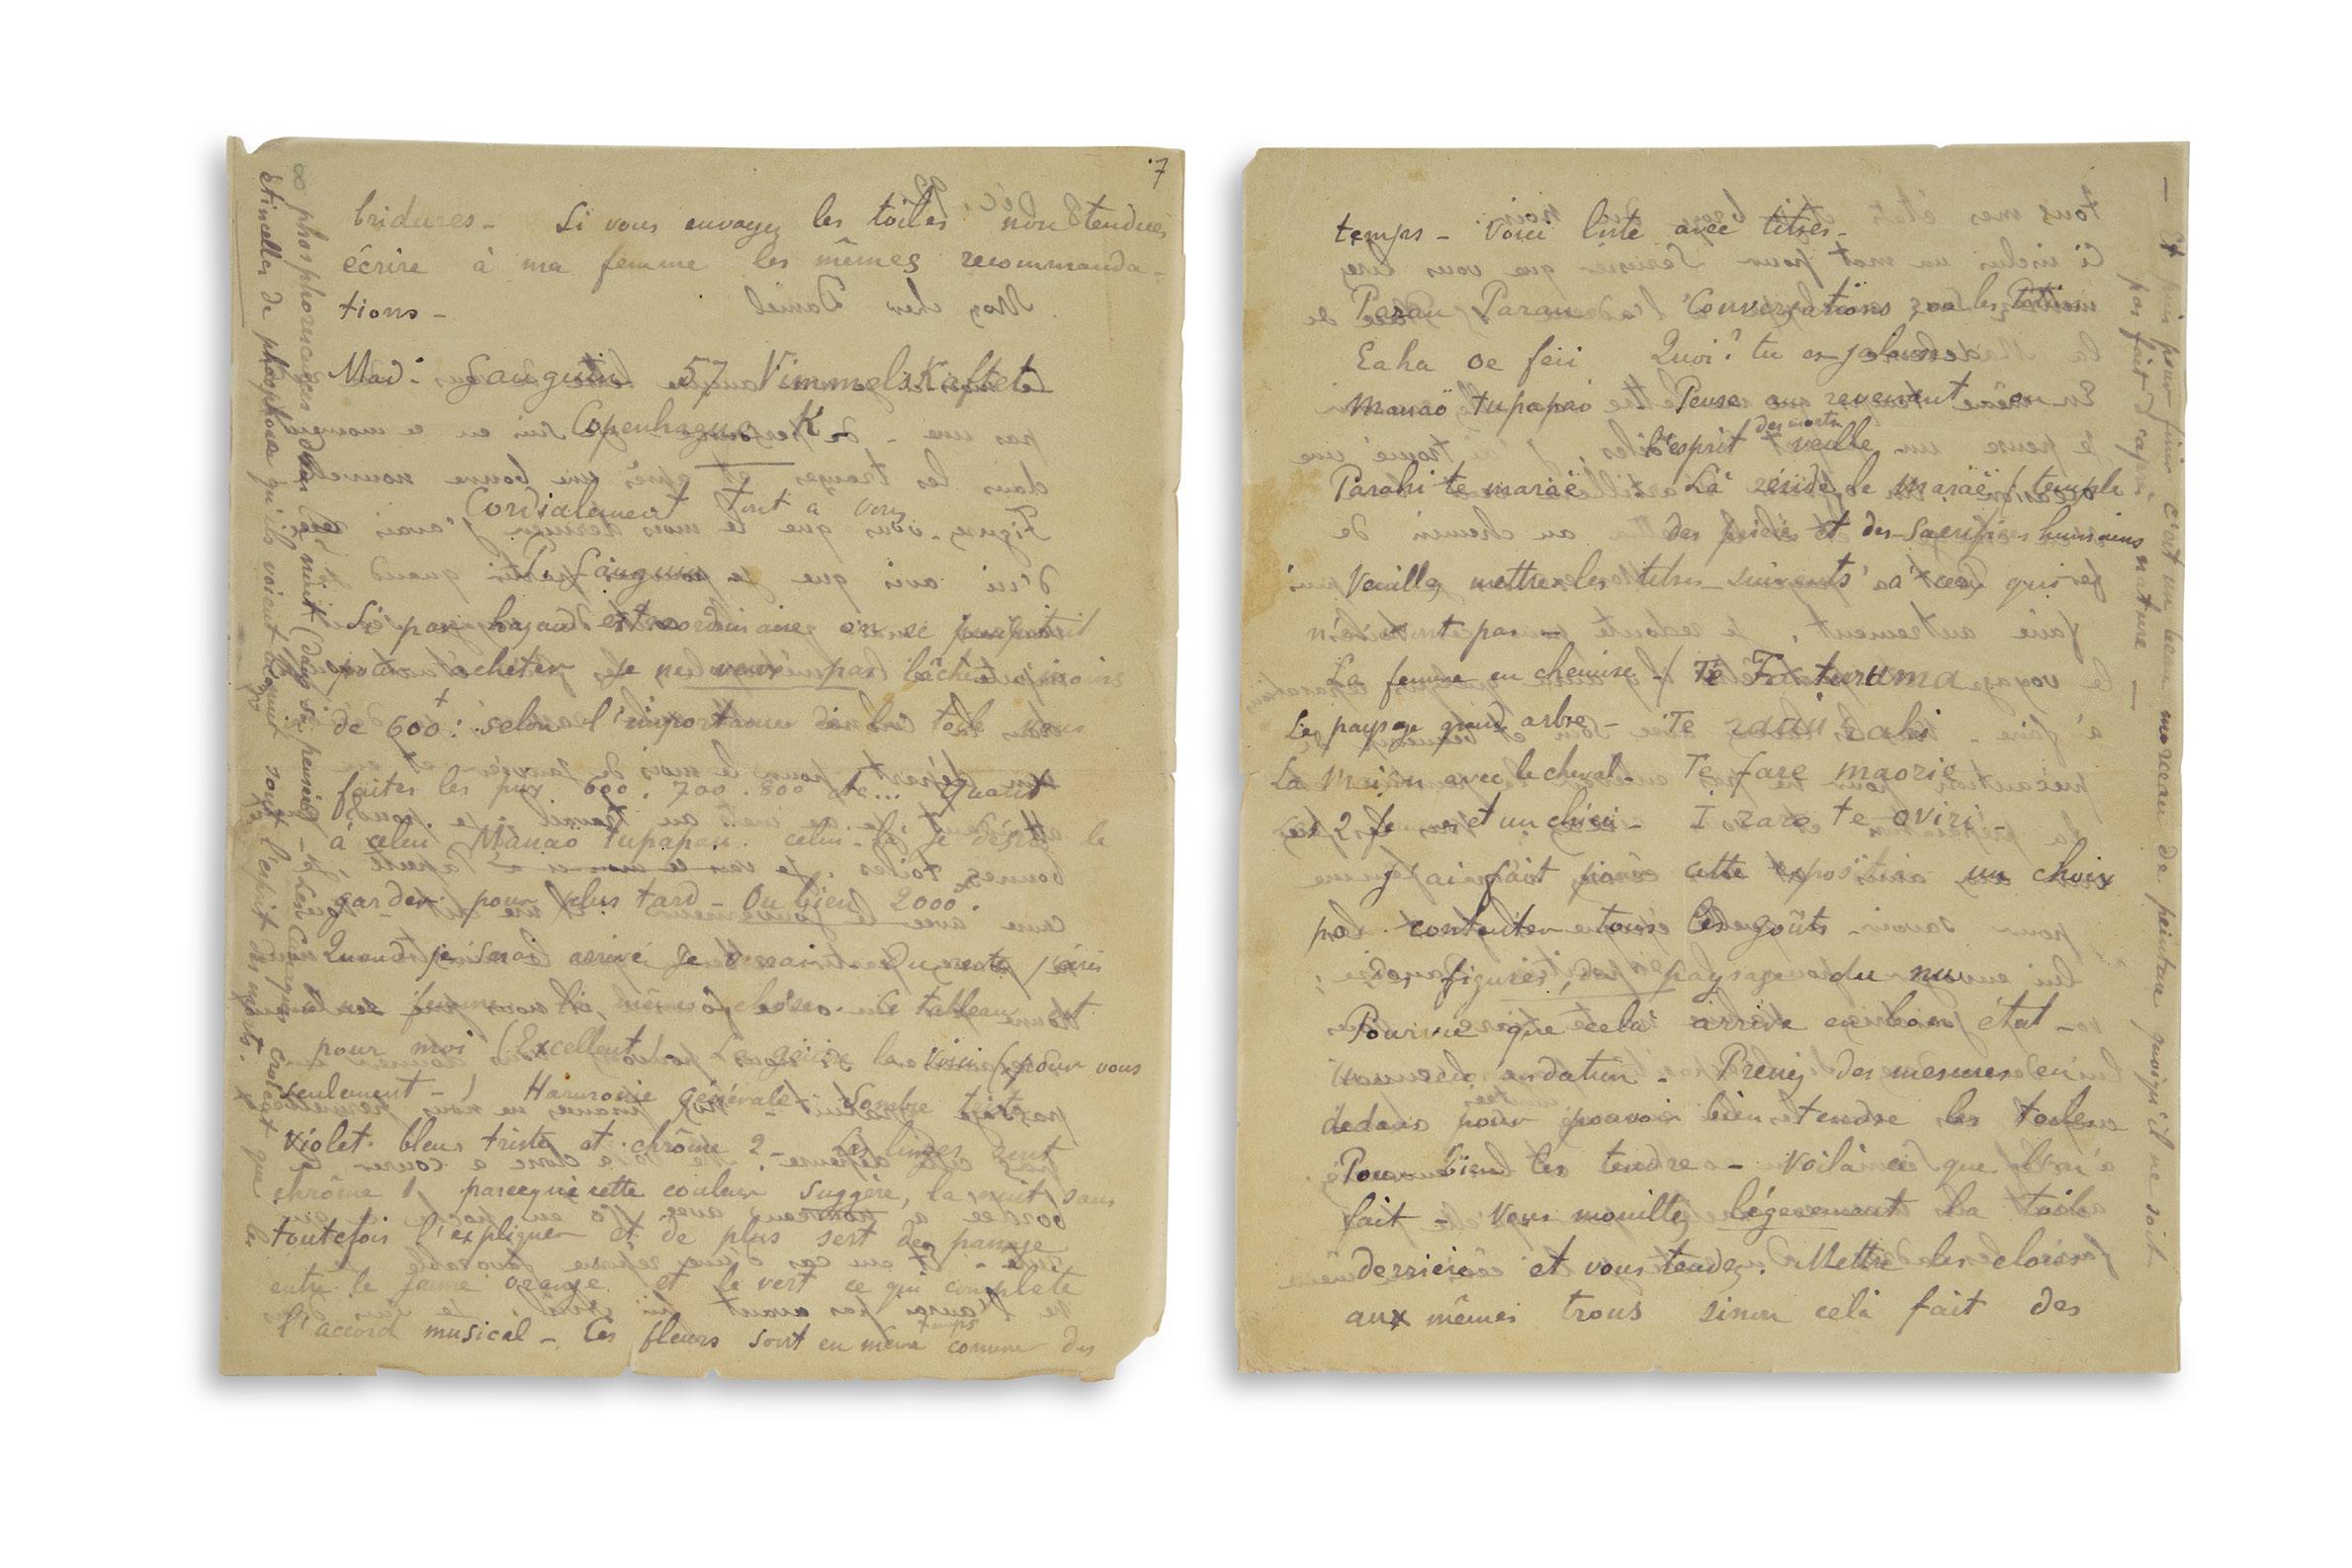 7
bridures - Si vous envoyez les toiles non tendues
écrire à ma femme les mêmes recommanda-
tions -
Mad. Gauguin 57 Vimmelskaftet
Copenhague K -
Cordialement tout a vous
P. Gauguin
Si par hazard extraordinaire on se
pour acheter je ne veux pas lâcher à moins
de 600 : selon l'importance de la toile vous
faites les prix 600. 700. 800 etc... Quant
à celui Manao tupapau celui-là je désire le
garder pour plus tard - Ou bien 2000.
Quand je serai arrivé je verrai - Du reste j'écris
à ma femme la même chose. Ce tableau est
pour moi (Excellent - La genèse la voici (pour vous
seulement -) Harmonie générale - Sombre triste
violet bleu triste et chrôme 2 - Les linges sont
chrôme 1 parceque cette couleur suggère, la nuit sans
toutefois l'expliquer et de plus sert de passage
entre le jaune orangé et le vert ce qui complète
l'accord musical - Ces fleurs sont en même temps comme des
phosphorescences dans la nuit (dans sa pensée) - Les Canaques croient que les
étincelles de phosphore qu'ils voient la nuit sont l'esprit des morts.
temps - Voici liste avec titres -
Parau Parau Conversations ou les Potins
Eaha oe feii Quoi? tu es jalouse
Manaö tupapau Pense au revenant ou
l'esprit des morts veille
Parahi te maraë Là réside le Maraë (temple
des prières et des sacrifices humains
Veuillez mettre les titres suivants à ceux qui n'en
ont pas -
La femme en chemise / Te Faturuma
Le paysage grand arbre - Te raau Rahi
La Maison avec le cheval - Te fare maorie
Les 2 fe et un chien - I raro te oviri -
J'ai fait pour cette exposition un choix
po contenter tous les goûts.
des figures, du paysage du nu
Pourvu que cela arrive en bon état -
Recommandation - Prenez des mesures en
dedans pour pouvoir bien tendre les toiles
Pour bien les tendre - Voilà ce que l'on
fait - Vous mouillez légèrement la toile
derrière et vous tendez. Mettre les clous
aux mêmes trous sinon celà fait des
- Et puis pour finir c'est un beau morceau de peinture quoiqu'il ne soit
pas fait d'après nature -